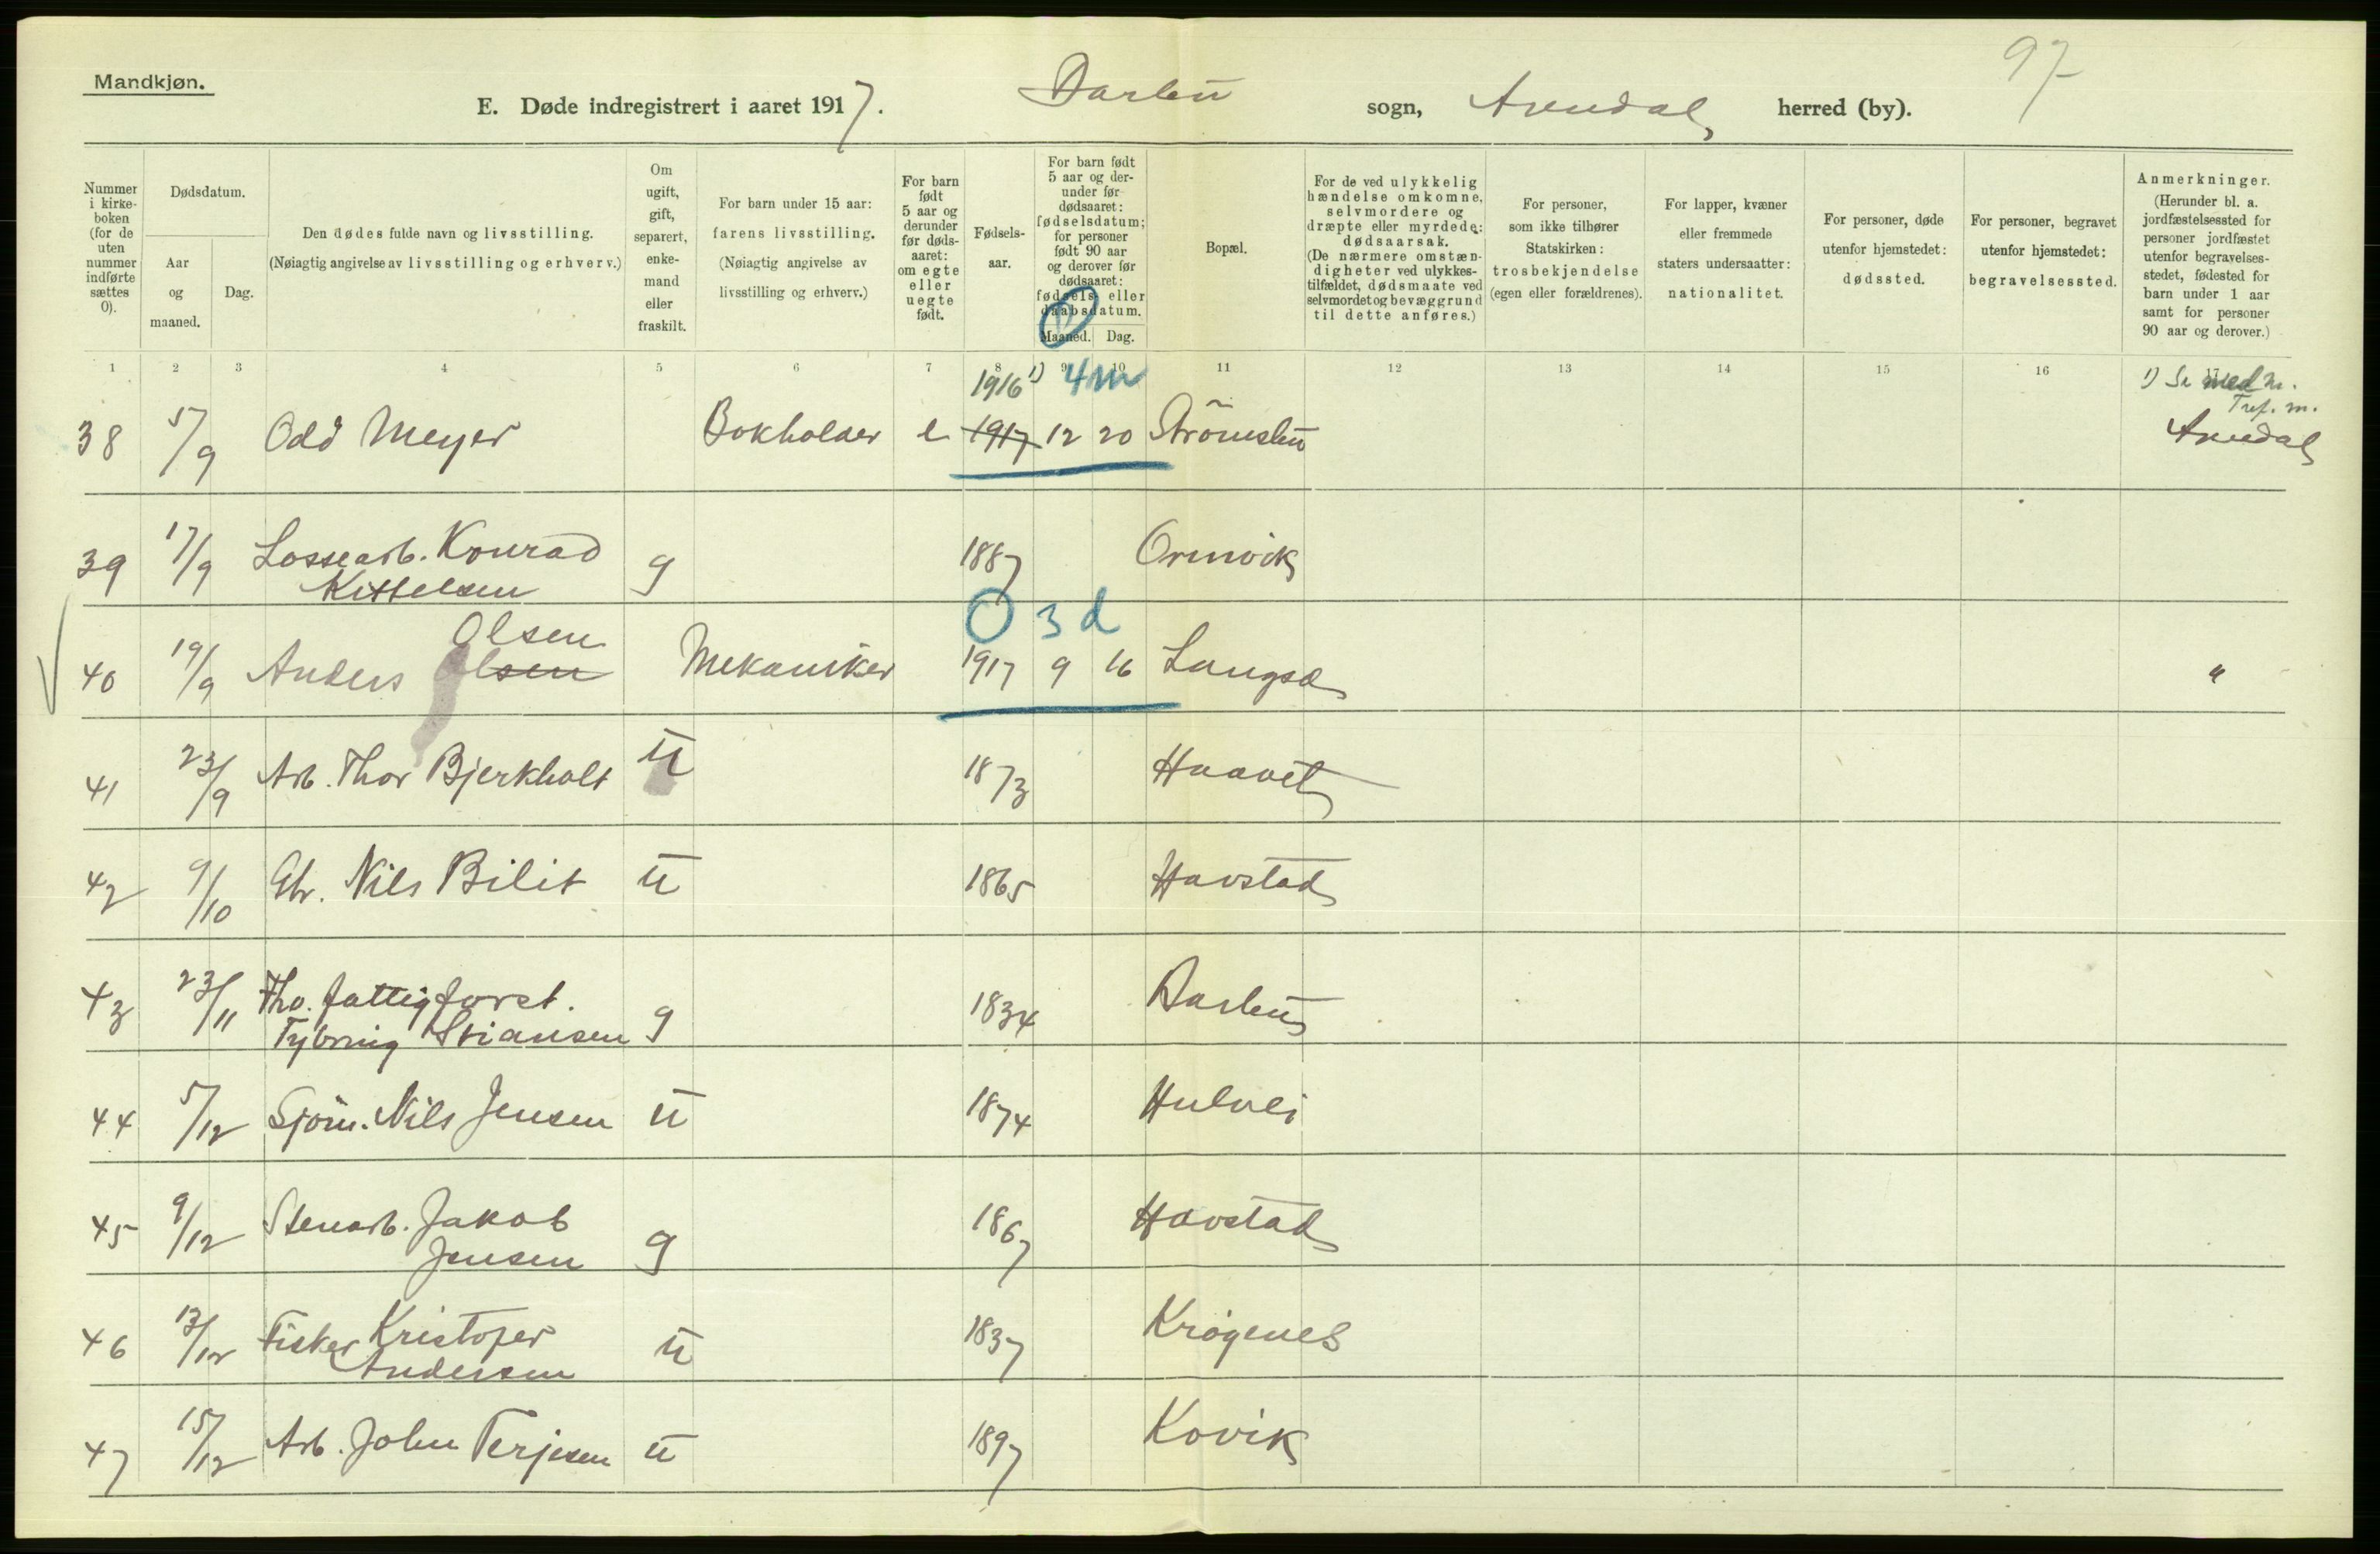 97
Mandkjøn.
E. Døde indregistrert i aaret 1917. Barbu sogn, Arendal herred (by).
Nummer i kirke-boken (for de uten nummer indførte sættes 0).
Dødsdatum.
Aar og maaned.
Dag.
Den dødes fulde navn og livsstilling.
(Nøiagtig angivelse av livsstilling og erhverv.)
Om ugift, gift, separert, enke-mand eller fraskilt.
For barn under 15 aar: farens livsstilling.
(Nøiagtig angivelse av livsstilling og erhverv.)
For barn født 5 aar og derunder før døds-aaret: om egte eller uegte født.
Fødsels-aar.
For barn født 5 aar og der-under før dødsaaret: fødselsdatum; for personer født 90 aar og derover før dødsaaret: fødsels eller daabsdatum.
Maaned. Dag.
Bopæl.
For de ved ulykkelig hændelse omkomne, selvmordere og dræpte eller myrdede: dødsaarsak.
(De nærmere omstæn-digheter ved ulykkes-tilfældet, dødsmaate ved selvmordet og bevæggrund til dette anføres.)
For personer, som ikke tilhører Statskirken: trosbekjendelse (egen eller forældrenes).
For lapper, kvæner eller fremmede staters undersaatter: nationalitet.
For personer, døde utenfor hjemstedet: dødssted.
For personer, begravet utenfor hjemstedet: begravelsessted.
Anmerkninger.
(Herunder bl. a. jordfæstelsessted for personer jordfæstet utenfor begravelses-stedet, fødested for barn under 1 aar samt for personer 90 aar og derover.)
1 2 3 4 5 6 7 8 9 10 11 12 13 14 15 16 17
1916 1) 4 m 1) Se med m.
38 5/9 Odd Meyer Bokholder e 1917 12 20 Strömsbu Arendal
39 17/9 Lossearb. Konrad Kittelsen g 1887 Ormvik
0 3 d
Olsen
40 19/9 Anders Olsen Mekaniker 1917 9 16 Langsæ "
41 23/9 Arb. Thor Bjerkholt u 1873 Haavet
42 9/10 Nils Bilit u 1865 Havstad
43 23/11 Fhv. fattigforst. Tybring Stiansen g 1834 Barbu
44 5/12 Sjöm. Nils Jensen u 1874 Hulvei
45 9/12 Stenarb. Jakob Jensen g 1867 Havstad
46 13/12 Fisker Kristofer Andersen u 1837 Krøgenes
47 15/12 Arb. John Terjesen u 1897 Kovik